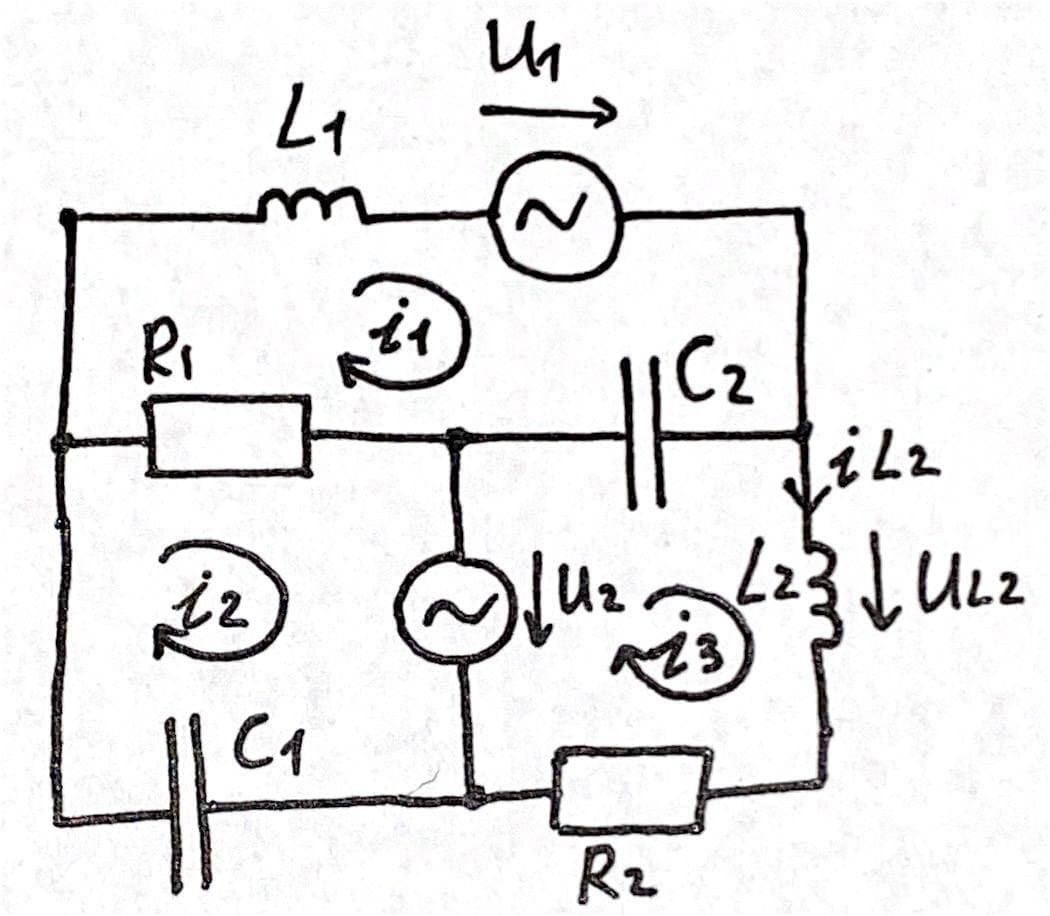 U1
L1
i1
R1
C2
iL2
i2
U2
L2
UL2
i3
C1
R2